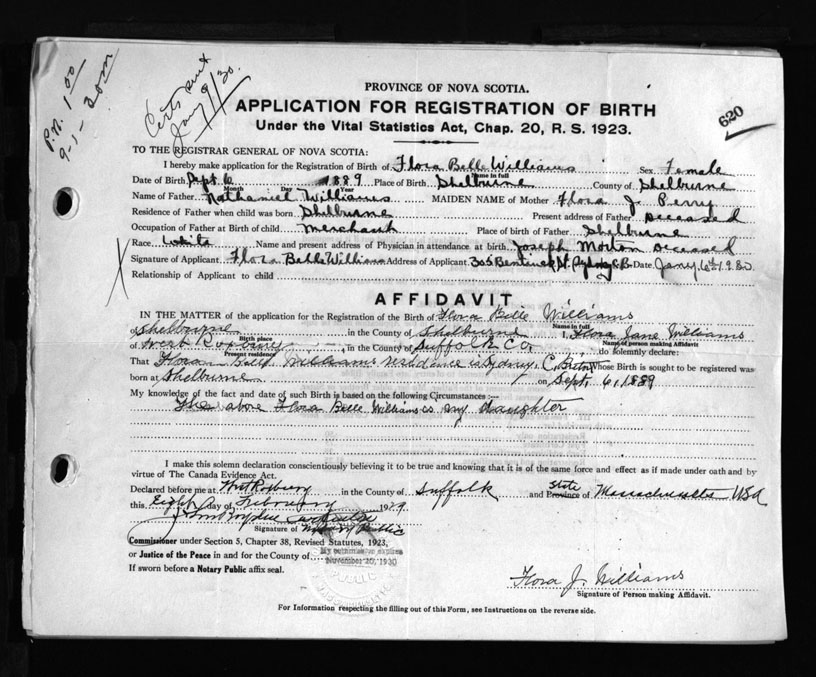 P.N. 1.00
Certs sent
Jany 9/30.
PROVINCE OF NOVA SCOTIA.
APPLICATION FOR REGISTRATION OF BIRTH
620
Under the Vital Statistics Act, Chap. 20, R. S. 1923.
TO THE REGISTRAR GENERAL OF NOVA SCOTIA:
I hereby make application for the Registration of Birth of Flora Belle Williams Sex Female
Name in full
Date of Birth Sept. 6 1889 Place of Birth Shelburne County of Shelburne
Month Day Year
Name of Father Nathaniel Williams MAIDEN NAME of Mother Flora J. Perry
Residence of Father when child was born Shelburne Present address of Father Deceased
Occupation of Father at Birth of child Merchant Place of birth of Father Shelburne
Race White Name and present address of Physician in attendance at birth Joseph Morton Deceased
Signature of Applicant Flora Belle Williams Address of Applicant 305 Bentinck St. Sydney C.B. Date Jany 6th 1930
Relationship of Applicant to child
AFFIDAVIT
IN THE MATTER of the application for the Registration of the Birth of Flora Belle Williams
Name in full
of Shelbourne in the County of Shelburne I, Flora Jane Williams
Birth place Name of person making Affidavit
of West Roxbury in the County of Suffolk Co. do solemnly declare:
Present residence
That Flora Belle Williams residence is Sydney, C. Breton Whose Birth is sought to be registered was
born at Shelburne on Sept. 6, 1889
My knowledge of the fact and date of such Birth is based on the following Circumstances :—
The above Flora Belle Williams is my daughter
I make this solemn declaration conscientiously believing it to be true and knowing that it is of the same force and effect as if made under oath and by
virtue of The Canada Evidence Act.
Declared before me at West Roxbury in the County of Suffolk and State Province of Massachusetts USA
this Eighth day of February 1929
Signature of Notary Public
Commissioner under Section 5, Chapter 38, Revised Statutes, 1923,
or Justice of the Peace in and for the County of
My commission expires
November 20, 1930
If sworn before a Notary Public affix seal.
Flora J. Williams
Signature of Person making Affidavit.
For Information respecting the filling out of this Form, see Instructions on the reverse side.